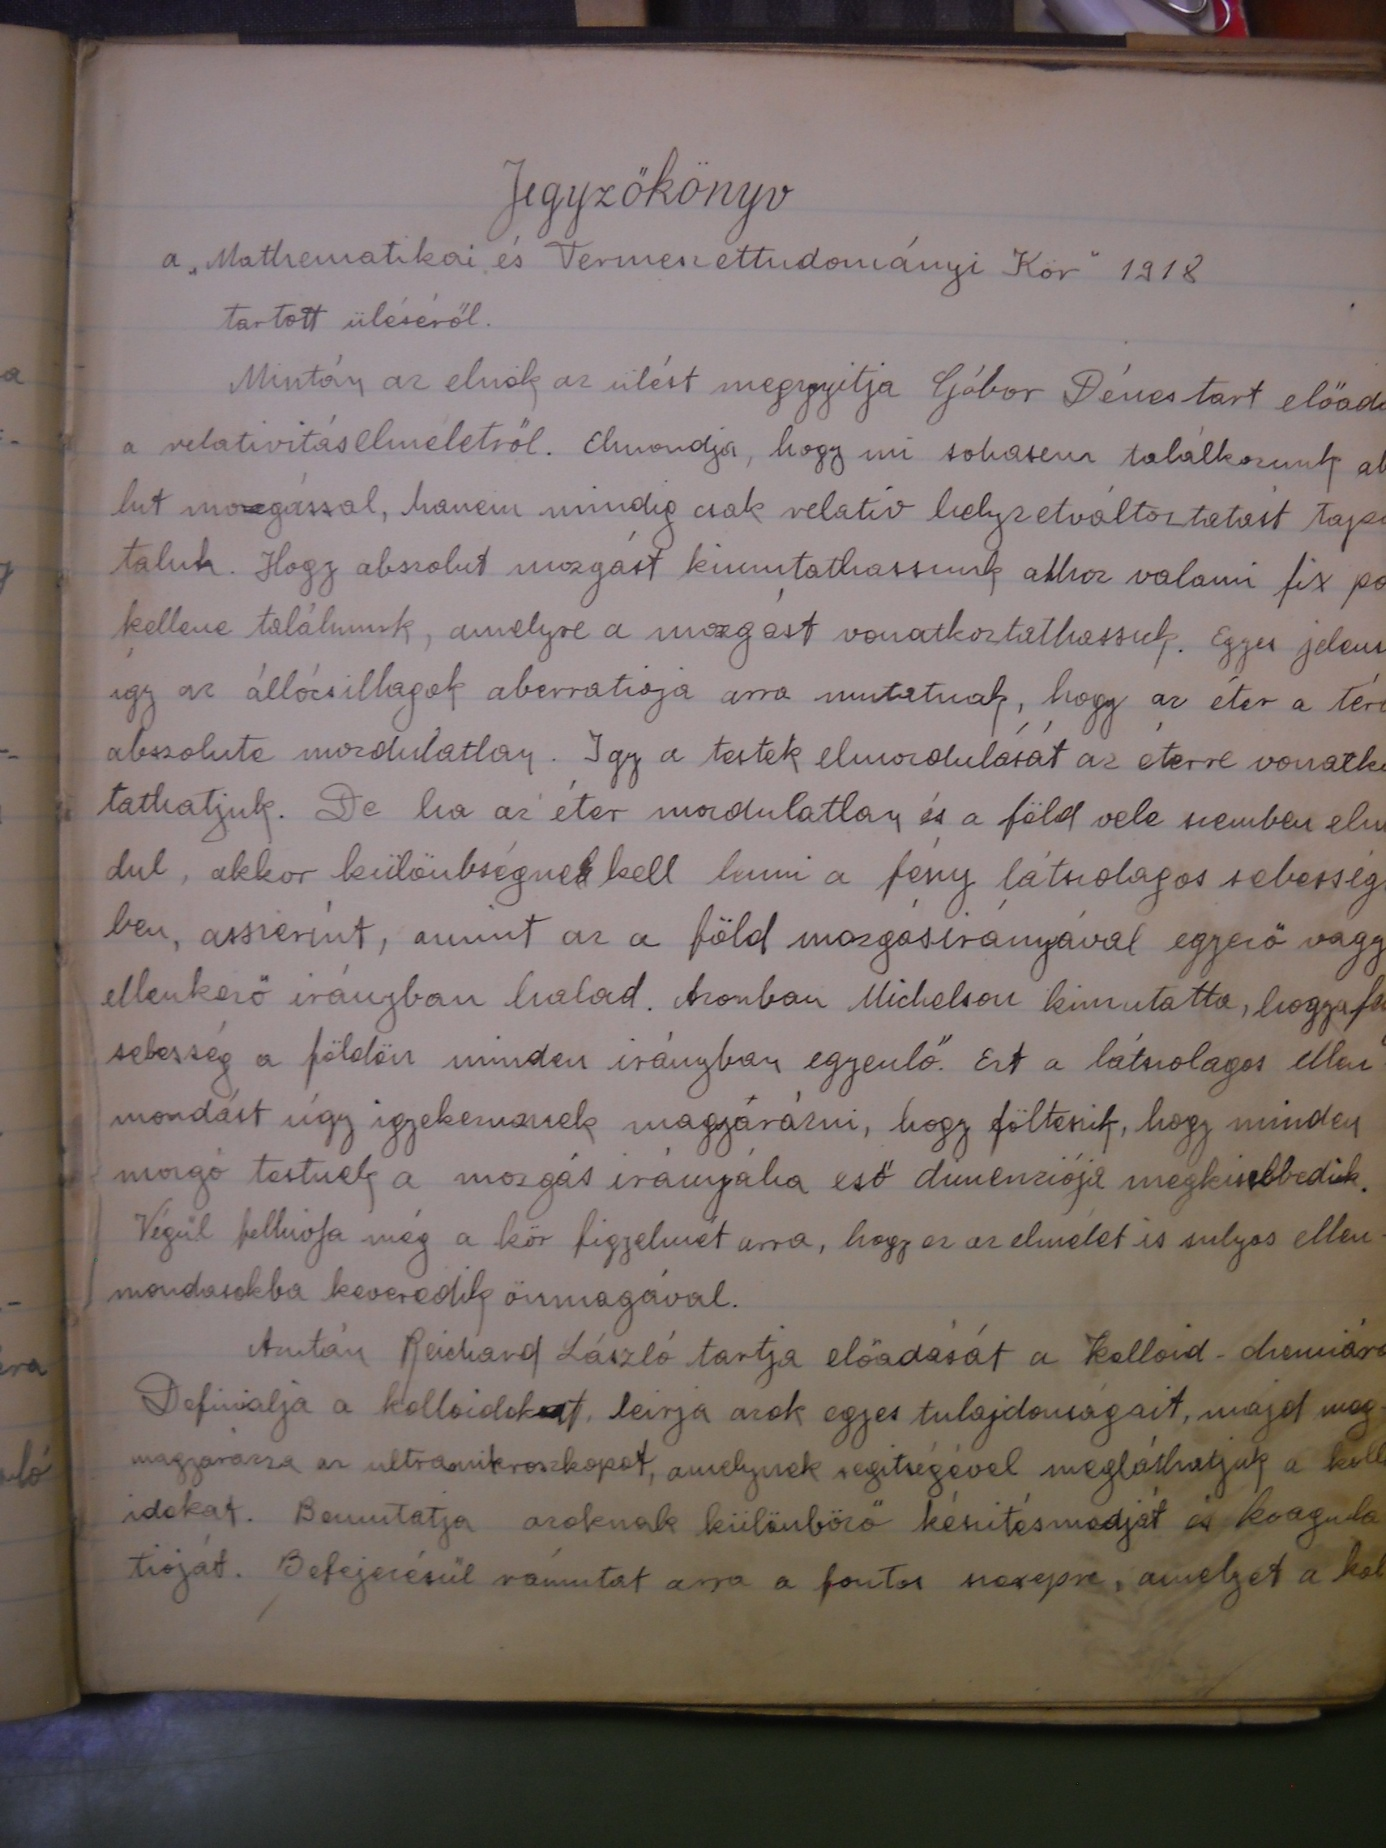 Jegyzőkönyv
a „Mathematikai és Termeszettudományi Kör" 1918
tartott üléséről.
Mintán az elnök az ülést megnyitja Gábor Dénes tart előadá
a relativitáselméletről. Elmondja, hogy mi sohasem találkozunk ab
lut mozgással, hanem mindig csak relatív helyzetváltoztatást tapa
talunk. Hogy abszolut mozgást kimutathassunk ahhoz valami fix po
kellene találnunk, amelyre a mozgást vonatkoztathassuk. Egyes jelens
így az állócsillagok aberratioja arra mutatnak, hogy az éter a tér
abszolute mozdulatlan. Igy a testek elmozdulását az éterre vonatko
tathatjuk. De ha az éter mozdulatlan és a föld vele szemben elmo
dul, akkor különbségnek kell lenni a fény látszolagos sebességé
ben, asszerint, amint az a föld mozgásirányával egyező vagy
ellenkező irányban halad. Azonban Michelson kimutatta, hogy a fé
sebesség a földön minden irányban egyenlő. Ezt a látszolagos ellen
mondást úgy igyekeznek magyarázni, hogy fölteszik, hogy minden
mozgó testnek a mozgás irányába eső dimenziója megkisebbedik.
Végül felhivja még a kör figyelmét arra, hogy ez az elmélet is sulyos ellen-
mondasokba keveredik önmagával.
Azután Reichard László tartja előadását a Kolloid-chemiáró
Definialja a kolloidokat, leirja azok egyes tulajdonságait, majd meg-
magyarázza az ultramikroszkopot, amelynek segitségével megláthatjuk a kollo
idokat. Bemutatja azoknak különböző készitésmodját és koagula
tioját. Befejezésül rámutat arra a fontos szerepre, amelyet a kol